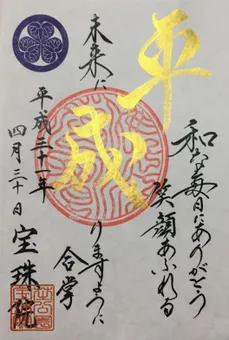 平成
和な毎日にありがとう
笑顔あふれる
未来に
りますように
合掌
平成三十一年
四月三十日
宝珠院